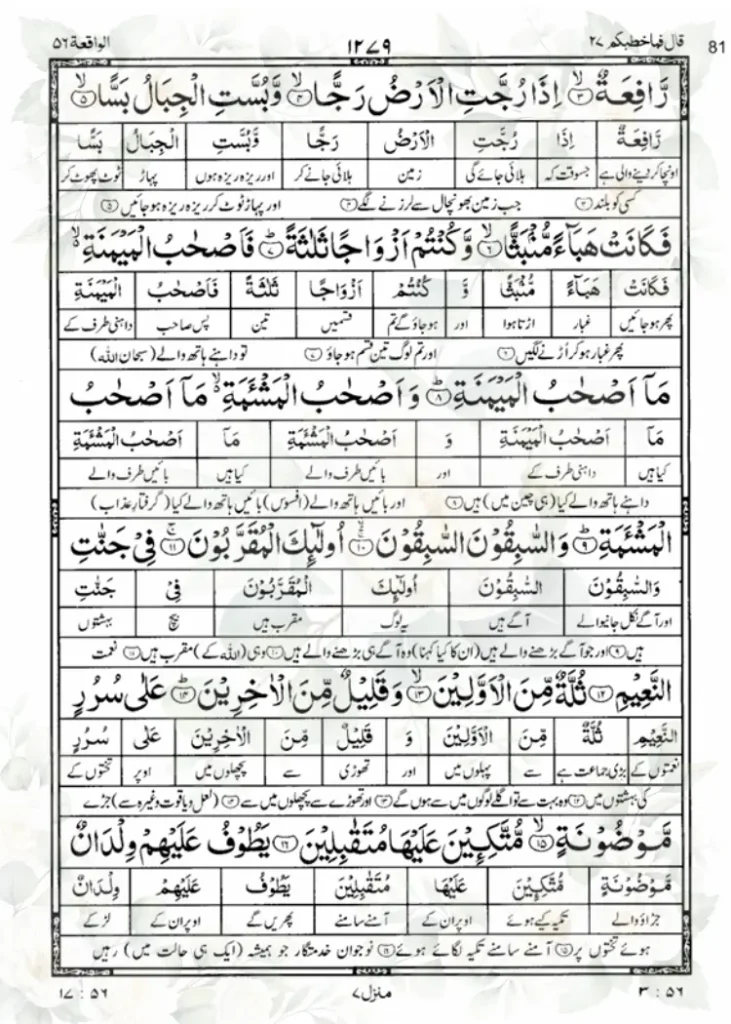 قال فماخطبکم ۲۷ ۱۲۷۹ الواقعة ۵۶
81
رَّافِعَةٌ ۙ﴿۳﴾ اِذَا رُجَّتِ الْاَرْضُ رَجًّا ۙ﴿۴﴾ وَّبُسَّتِ الْجِبَالُ بَسًّا ۙ﴿۵﴾
رَّافِعَةٌ اِذَا رُجَّتِ الْاَرْضُ رَجًّا وَّبُسَّتِ الْجِبَالُ بَسًّا
اونچا کر دینے والی ہے جسوقت کہ ہلائی جائے گی زمین ہلائی جانے کر اور ریزہ ریزہ ہوں پہاڑ ٹوٹ پھوٹ کر
کسی کو بلند ﴿۳﴾ جب زمین بھونچال سے لرزنے لگے ﴿۴﴾ اور پہاڑ ٹوٹ کر ریزہ ریزہ ہو جائیں ﴿۵﴾
فَكَانَتْ هَبَآءً مُّنْۢبَثًّا ۙ﴿۶﴾ وَّكُنْتُمْ اَزْوَاجًا ثَلٰثَةً ؕ﴿۷﴾ فَاَصْحٰبُ الْمَيْمَنَةِ ۙ۬
فَكَانَتْ هَبَآءً مُّنْۢبَثًّا وَّ كُنْتُمْ اَزْوَاجًا ثَلٰثَةً فَاَصْحٰبُ الْمَيْمَنَةِ
پھر ہو جائیں غبار اڑتا ہوا اور ہو جاؤ گے تم قسمیں تین پس صاحب داہنی طرف کے
پھر غبار ہو کر اُڑنے لگیں ﴿۶﴾ اور تم لوگ تین قسم ہو جاؤ ﴿۷﴾ تو داہنے ہاتھ والے (سبحان اللہ)
مَاۤ اَصْحٰبُ الْمَيْمَنَةِ ؕ﴿۸﴾ وَاَصْحٰبُ الْمَشْـَٔمَةِ ۙ۬ مَاۤ اَصْحٰبُ
مَاۤ اَصْحٰبُ الْمَيْمَنَةِ وَ اَصْحٰبُ الْمَشْـَٔمَةِ مَاۤ اَصْحٰبُ الْمَشْـَٔمَةِ
کیا ہیں داہنی طرف کے اور بائیں طرف والے کیا ہیں بائیں طرف والے
داہنے ہاتھ والے کیا (ہی چین میں) ہیں ﴿۸﴾ اور بائیں ہاتھ والے (افسوس) بائیں ہاتھ والے کیا (گرفتارِ عذاب)
الْمَشْـَٔمَةِ ؕ﴿۹﴾ وَالسّٰبِقُوْنَ السّٰبِقُوْنَ ۙ﴿۱۰﴾ اُولٰٓئِكَ الْمُقَرَّبُوْنَ ۚ﴿۱۱﴾ فِيْ جَنّٰتِ
وَالسّٰبِقُوْنَ السّٰبِقُوْنَ اُولٰٓئِكَ الْمُقَرَّبُوْنَ فِيْ جَنّٰتِ
اور آگے نکل جانیوالے آگے ہیں یہ لوگ مقرب ہیں بیچ بہشتوں
ہیں ﴿۹﴾ اور جو آگے بڑھنے والے ہیں (ان کا کیا کہنا) وہ آگے ہی بڑھنے والے ہیں ﴿۱۰﴾ وہی (اللہ کے) مقرب ہیں ﴿۱۱﴾ نعمت
النَّعِيْمِ ﴿۱۲﴾ ثُلَّةٌ مِّنَ الْاَوَّلِيْنَ ۙ﴿۱۳﴾ وَقَلِيْلٌ مِّنَ الْاٰخِرِيْنَ ؕ﴿۱۴﴾ عَلٰى سُرُرٍ
النَّعِيْمِ ثُلَّةٌ مِّنَ الْاَوَّلِيْنَ وَ قَلِيْلٌ مِّنَ الْاٰخِرِيْنَ عَلٰى سُرُرٍ
نعمتوں کے بڑی جماعت ہے سے پہلوں میں اور تھوڑی سے پچھلوں میں اوپر تختوں کے
کی بہشتوں میں ﴿۱۲﴾ وہ بہت سے تو اگلے لوگوں میں سے ہوں گے ﴿۱۳﴾ اور تھوڑے سے پچھلوں میں سے ﴿۱۴﴾ (لعل و یاقوت وغیرہ سے) جڑے
مَّوْضُوْنَةٍ ۙ﴿۱۵﴾ مُّتَّكِـِٕيْنَ عَلَيْهَا مُتَقٰبِلِيْنَ ﴿۱۶﴾ يَطُوْفُ عَلَيْهِمْ وِلْدَانٌ
مَّوْضُوْنَةٍ مُّتَّكِـِٕيْنَ عَلَيْهَا مُتَقٰبِلِيْنَ يَطُوْفُ عَلَيْهِمْ وِلْدَانٌ
جڑاؤ والے تکیہ کیے ہوئے اوپر ان کے آمنے سامنے پھریں گے اوپر ان کے لڑکے
ہوئے تختوں پر ﴿۱۵﴾ آمنے سامنے تکیہ لگائے ہوئے ﴿۱۶﴾ نوجوان خدمتگار جو ہمیشہ (ایک ہی حالت میں) رہیں
۵۶ : ۳ منزل ۷ ۵۶ : ۱۷